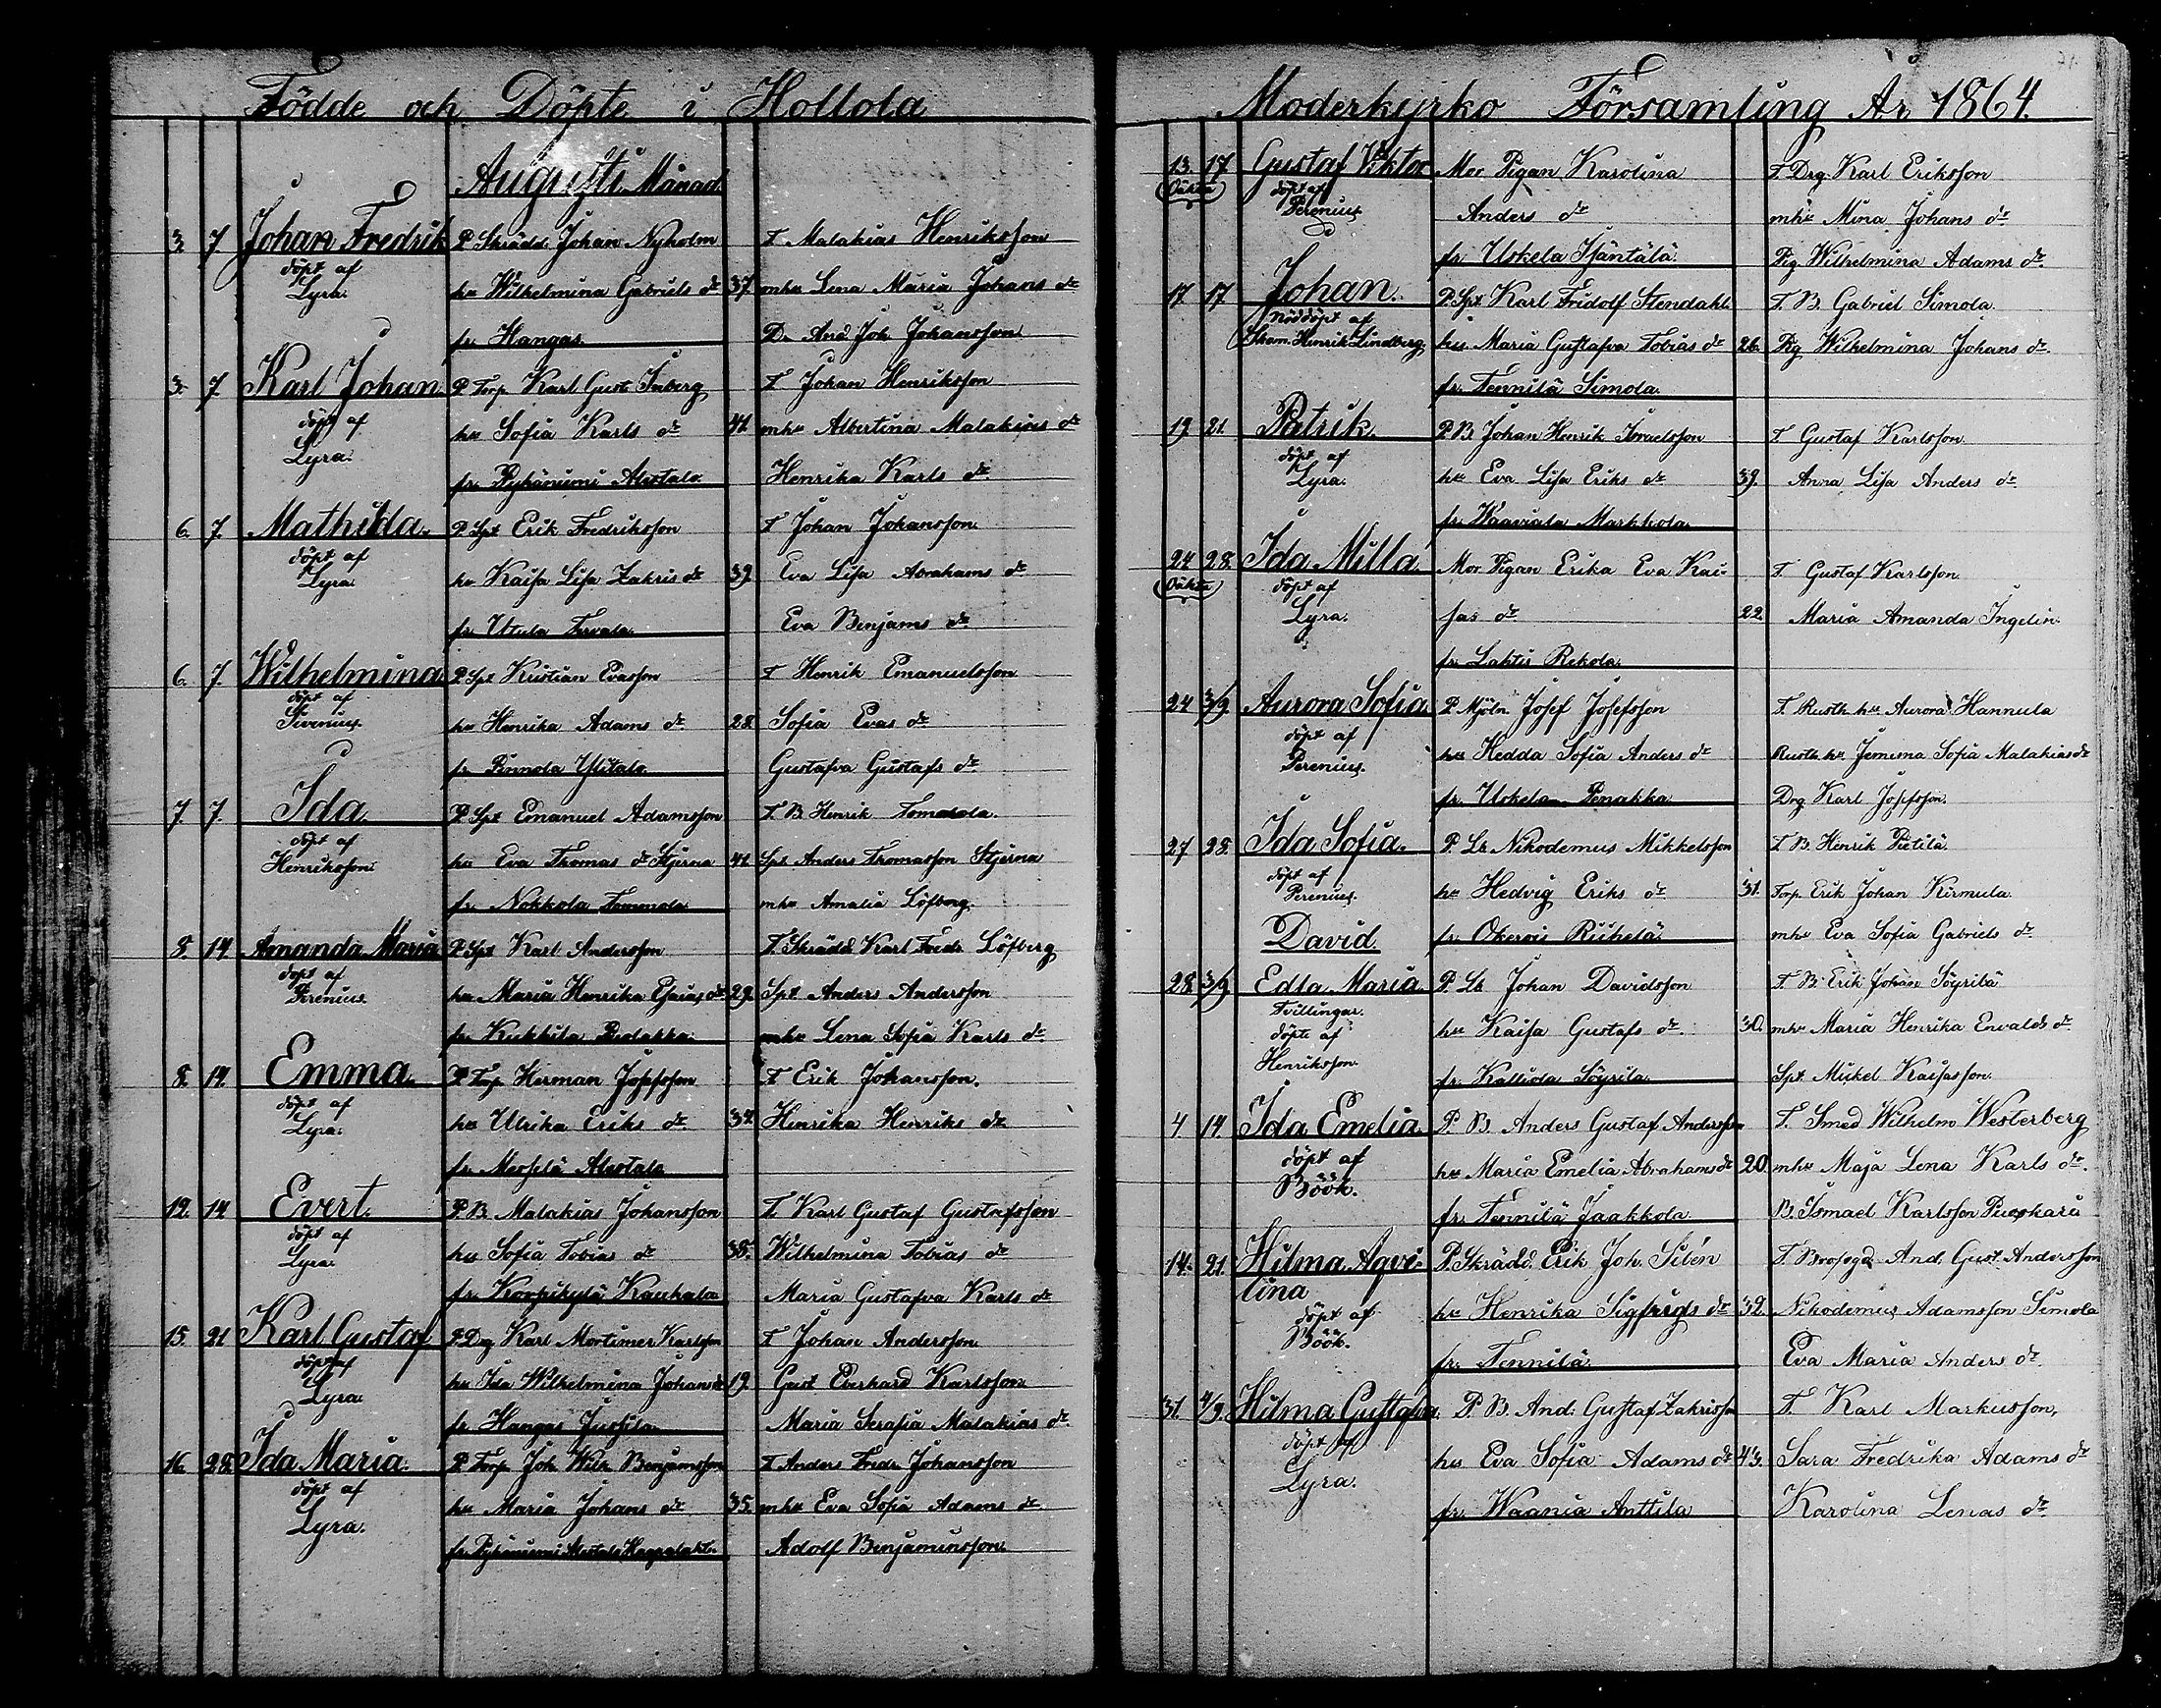 Födde och Döpte i Hollola
Augusti Månad
3. 7. Johan Fredrik P. Skrädd. Johan Nyholm T. Malakias Henriksson
döpt af Lyra. hu Wilhelmina Gabriels dr 37. mhu Lena Maria Johans dr
fr. Hangas Dr. And. Joh. Johansson
3. 7. Karl Johan. P. Torp. Karl Gust. Inberg T. Johan Henriksson
döpt af Lyra. hu Sofia Karls dr 41. mhu Albertina Malakias dr
fr. Pyhäniemi Alestalo Henrika Karls dr
6. 7. Mathilda. P. Spt Erik Fredriksson T. Johan Johansson
döpt af Lyra hu Kaisa Lisa Zakris dr 39. Eva Lisa Abrahams dr
fr. Utula Tervala Eva Benjams dr
6. 7. Wilhelmina P. Spt Kristian Evasson T. Henrik Emanuelsson
döpt af hu Henrika Adams dr 28. Sofia Evas dr
fr. Pennola Ylitalo Gustafva Gustafs dr
7. 7. Ida P. Spt Emanuel Adamsson T. B. Henrik
döpt af Henriksson hu Eva Thomas dr Stjerna 41. Spt Anders Thomasson Stjerna
fr. Nokkola Tommola mhu Amalia Löfberg
8. 14. Amanda Maria P. Spt Karl Andersson T. Skrädd. Karl Fredr. Löfberg
döpt af Perenius hu Maria Henrika Esaias dr 29. Spt Anders Andersson
fr. Kukkila mhu Lena Sofia Karls dr
8. 14. Emma. P. Torp. Herman Josefsson T. Erik Johansson.
döpt af Lyra. hu Ulrika Eriks dr 34. Henrika Henriks dr
fr. Messilä Alestalo
12. 14 Evert. P. B. Malakias Johansson T. Karl Gustaf Gustafsson
döpt af Lyra. hu Sofia Tobias dr 38. Wilhelmina Tobias dr
fr. Korpikylä Kauhala Maria Gustafva Karls dr
15. 21 Karl Gustaf P. Drg Karl Mortimer Karlsson T. Johan Andersson
döpt af Lyra hu Ida Wilhelmina Johans dr 19. Gust Everhard Karlsson
fr. Hangas Jussila Maria Serafia Malakias dr
16. 28. Ida Maria. P. Torp. Joh. Wilh. Benjamsson T. Anders Fredr. Johansson
döpt af Lyra. hu Maria Johans dr 35. mhu Eva Sofia Adams dr
fr. Pyhäniemi Alestalo Adolf Benjaminsson.
Moderkyrko Församling År 1864.
13. 17 Gustaf Viktor Mor Pigan Karolina T. Drg. Karl Eriksson
Oäkta döpt af Perenius Anders dr mhu Mina Johans dr
fr. Uskela Pig. Wilhelmina Adams dr
17. 17 Johan. P. Spt Karl Fridolf Stendahl T. B. Gabriel Simola
Nöddöpt af Henrik Lindberg hu Maria Gustafva Tobias dr 26. Pig. Wilhelmina Johans dr
fr. Tennilä Simola
19. 21. Patrik. P. B. Johan Henrik Israelsson T. Gustaf Karlsson
döpt af Lyra. hu Eva Lisa Eriks dr 39. Anna Lisa Anders dr
fr. Waaniala Markkola
24 28. Ida Milla. Mor Pigan Erika Eva Kai- T. Gustaf Karlsson
Oäkta döpt af Lyra. sas dr 22. Maria Amanda Ingelin.
fr. Lahtis Rekola
24 3/9. Aurora Sofia P. Mjöln. Josef Josefsson T. Rusth. hu Aurora Hannula
döpt af Perenius. hu Hedda Sofia Anders dr Rusth. hu Jemima Sofia Malakias dr
fr. Uskela Penakka Drg Karl Josefsson.
27 28. Ida Sofia. P. Lb Nikodemus Mikkelsson T. B. Henrik Pietilä
döpt af Perenius. hu Hedvig Eriks dr 31. Torp. Erik Johan Kirmula
David fr. Okerois Riihelä mhu Eva Sofia Gabriels dr
28. 3/9 Edla Maria. P. Lb Johan Davidsson T. B. Erik Johan Söyrilä
Tvillingar. döpte af hu Kaisa Gustafs dr 30. mhu Maria Henrika Envalds dr
Henriksson. fr. Kalliola Söyrilä Spt Mickel Kaisasson.
4. 14. Ida Emelia. P. B. Anders Gustaf Andersson T. Smed Wilhelm Westerberg
döpt af Böök. hu Maria Emelia Abrahams dr 20. mhu Maja Lena Karls dr
fr. Tennilä Jaakkola B. Ismael Karlsson
14. 21. Hilma Aqvi- P. Skrädd. Erik Joh. Silén T. And. Gust. Andersson
lina döpt af hu Henrika Sigfrids dr 32. Nikodemus Adamsson Simola
Böök. fr. Tennilä Eva Maria Anders dr
31. 4/9. Hilma Gustafva. P. B. And. Gustaf Zakrisson T. Karl Markusson,
döpt af hu Eva Sofia Adams dr 43. Sara Fredrika Adams dr
Lyra. fr. Waania Anttila Karolina Lenas dr